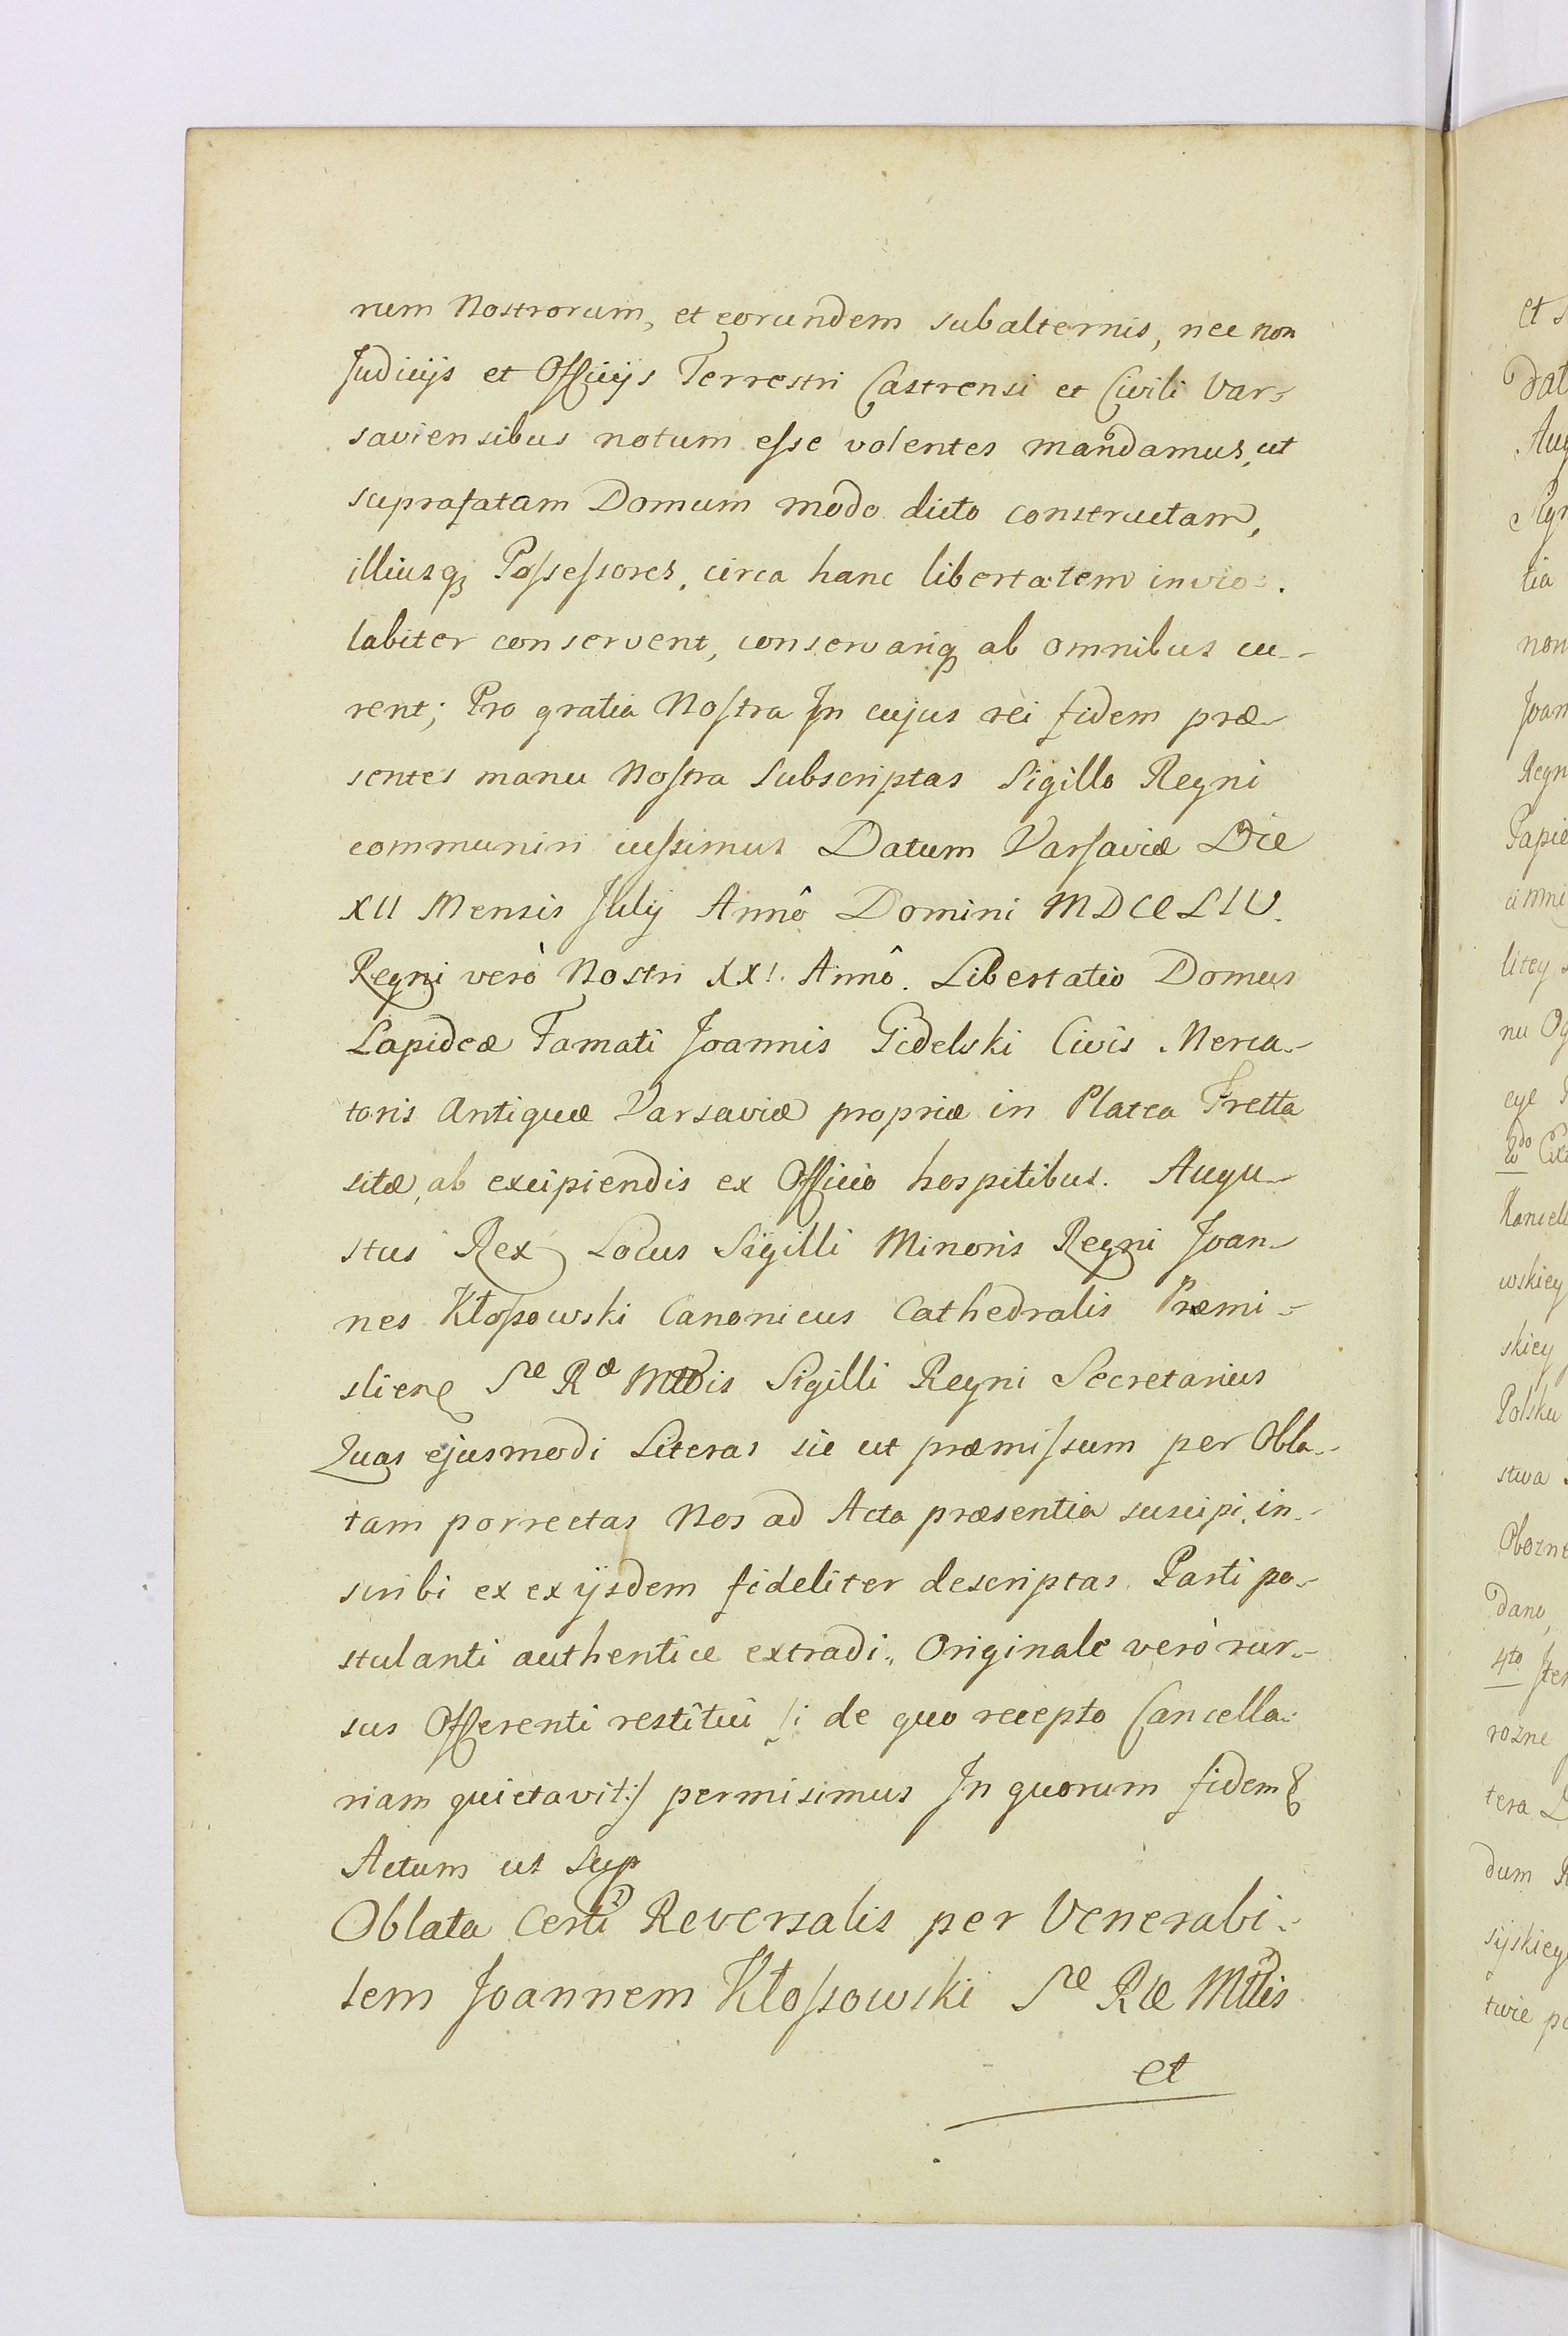 rum Nostrorum, et eorundem subalternis, nec non
Judicijs et Officijs Terrestri Castrensi et Civili Var-
saviensibus notum eſse volentes mandamus, ut
suprafatam Domum modo dicto constructam,
illiusq; Poſseſsores, circa hanc libertatem invio-
labiter conservent, conservariq; ab omnibus cu-
rent; Pro gratia Noſtra In cujus rei fidem præ-
sentes manu Noſtra Subscriptas Sigillo Regni
communiri iuſsimus Datum Varſaviæ Die
XII Mensis Julij Annô Domini MDCCLIV.
Regni verò Nostri XXI. Annô. Libertatio Domus
Lapideæ Famati Joannis Gidelski Civis Merca-
toris Antiquæ Varsaviæ propriæ in Platea Fretta
sitæ, ab excipiendis ex Officio hospitibus. Augu-
stus Rex Locus Sigilli Minoris Regni Joan-
nes Kłoſsowski Canonicus Cathedralis Præmi-
slien Sæ Ræ Mttis Sigilli Regni Secretarius
Quas ejusmodi Literas sic ut præmiſsum per Obla-
tam porrectas Nos ad Acta præsentia suscipi, in-
scribi ex ex ijsdem fideliter descriptas Parti po-
stulanti authentice extradi, Originale verò rur-
sus Offerenti restitui /: de quo recepto Cancella-
riam quietavit :/ permisimus In quorum fidem
Actum ut Sup
Oblata Certi Reversalis per Venerabi-
lem Joannem Kłoſsowski Sæ Ræ Mttis
et
et
Dat
Aug
tia
non
Joan
Regn
Papie
nu Og
eye
wskiey
skiey
Polsku
stwa
Obozne
dano,
4to
rozne
tera
dum
sijskiey
twie po